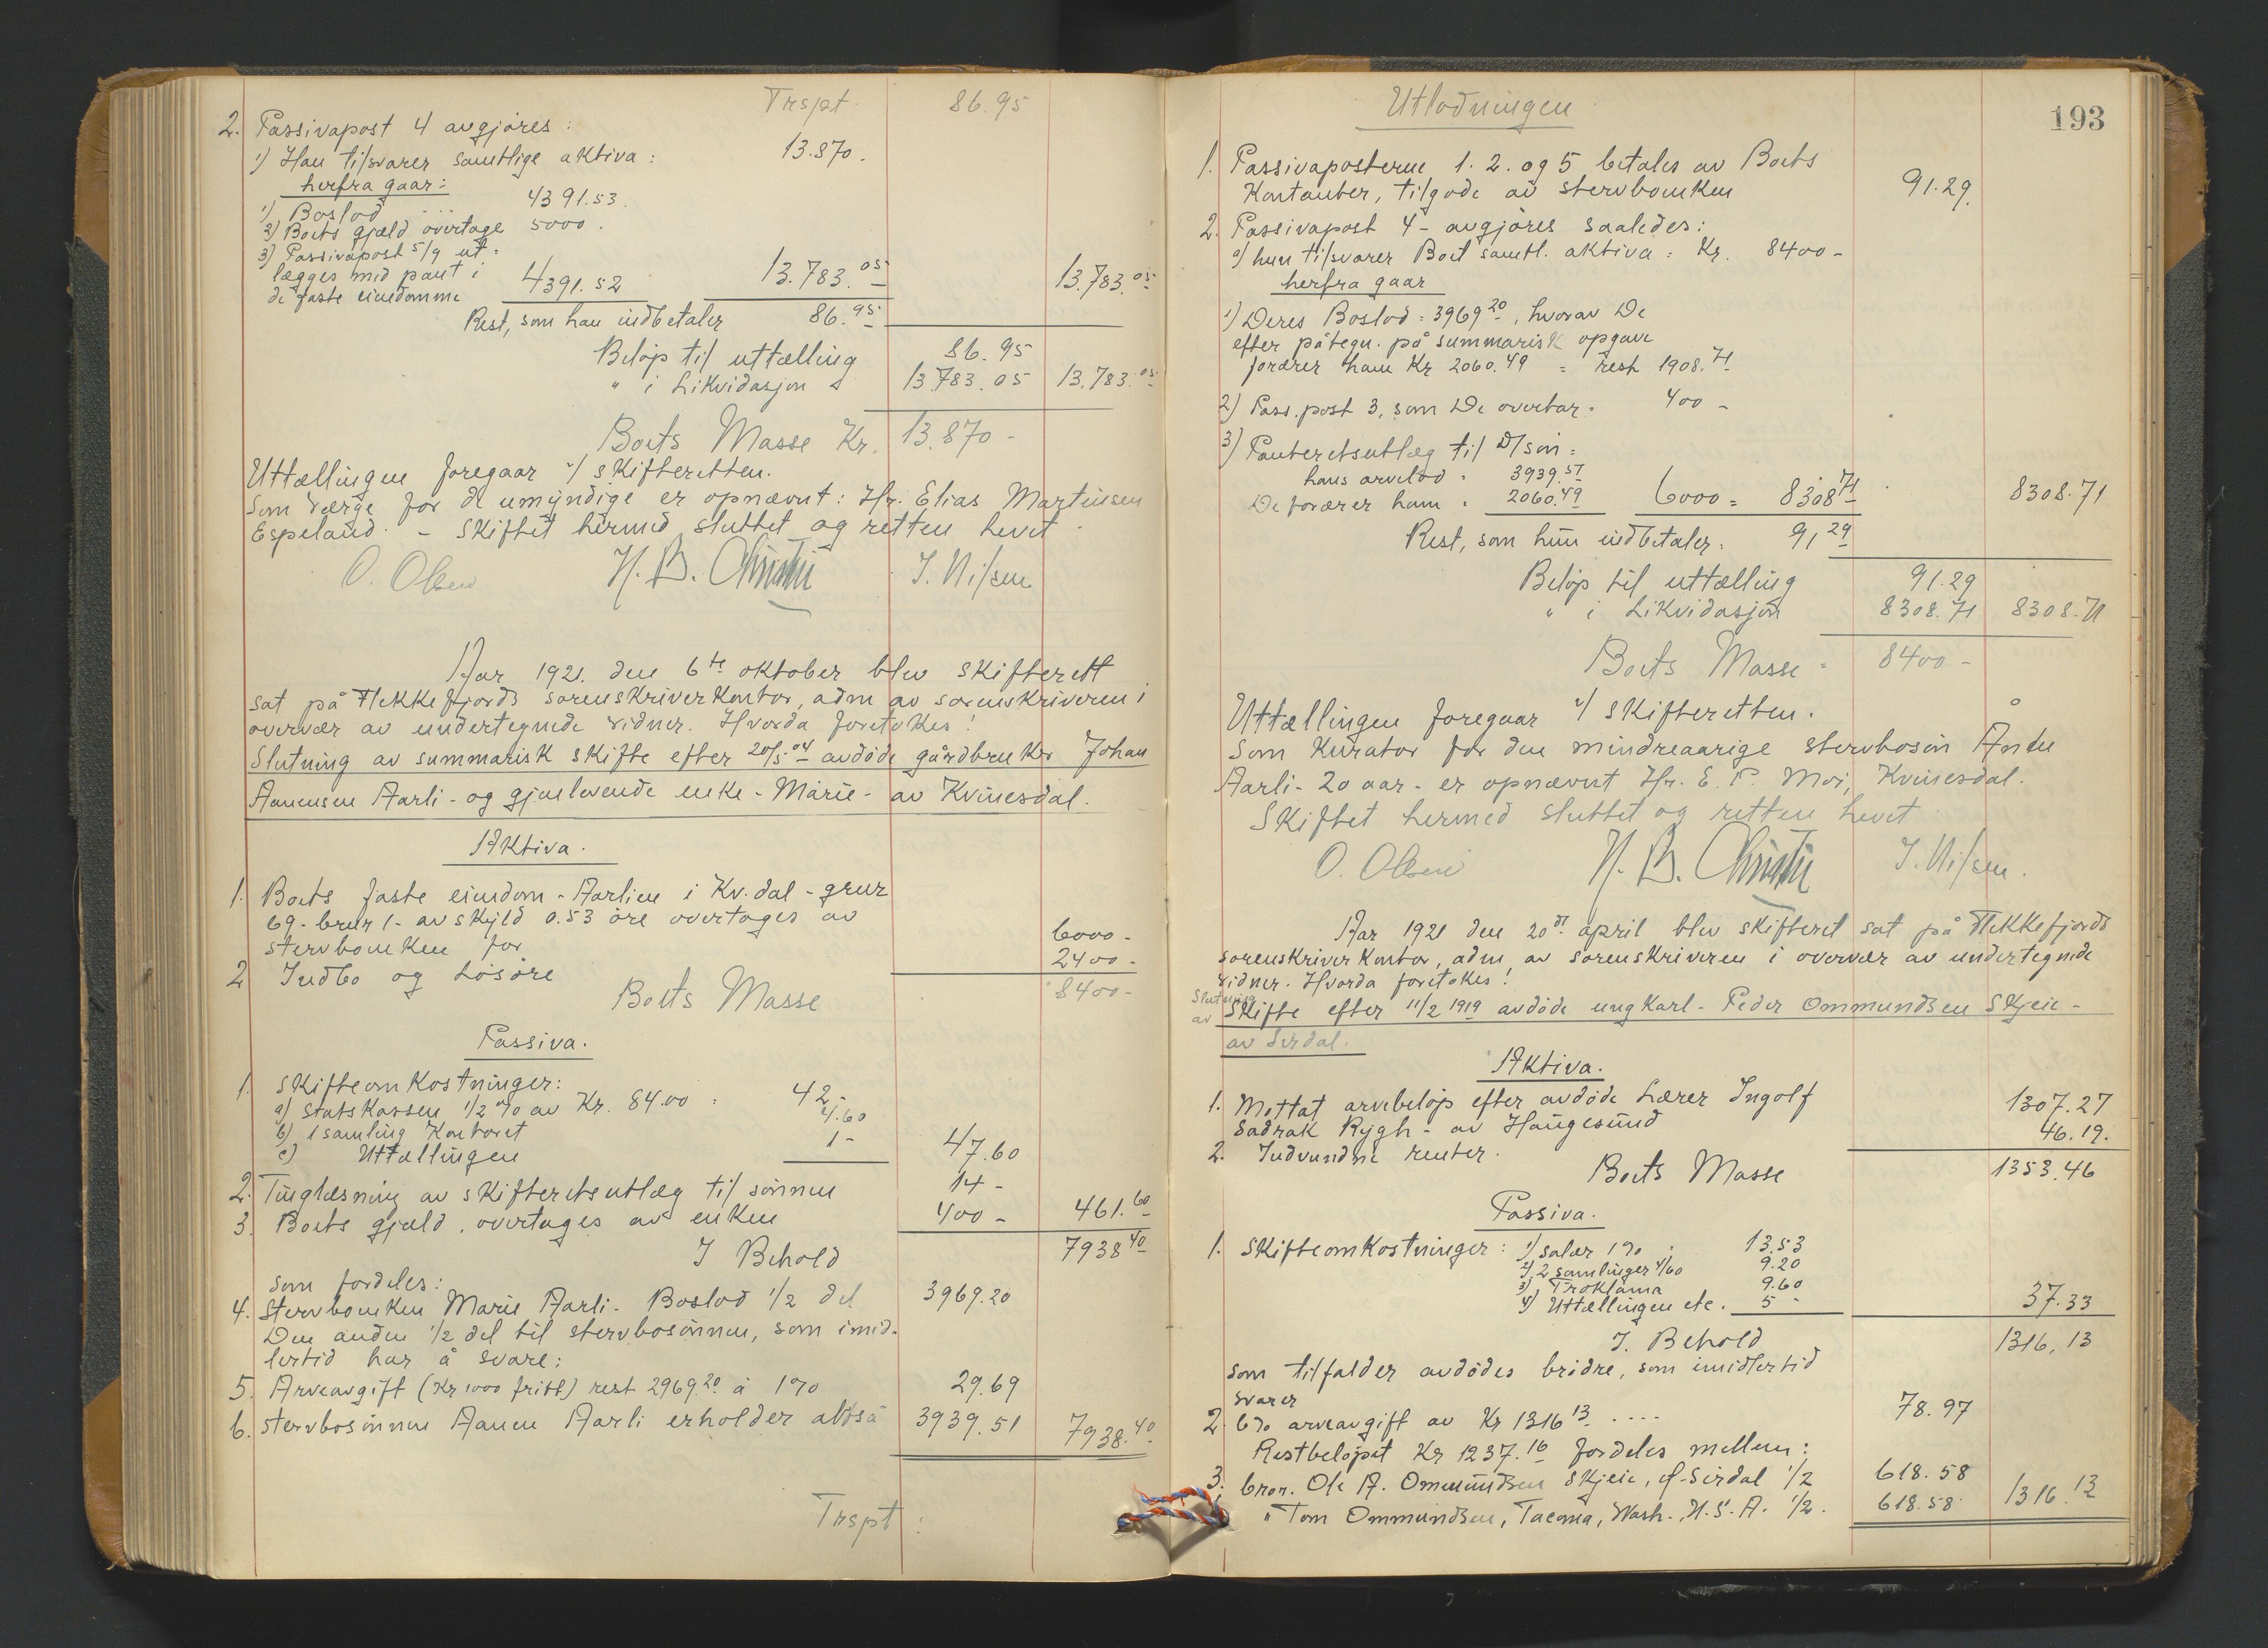 Trspt. 86.95
2. Passivapost 4 avgjøres:
1) Han tilsvarer samtlige aktiva: 13.870.
herfra gaar:
1) Boslod ... 4391.53.
2) Boets gjæld overtage 5000.
3) Passivapost 5/9 ut-
lægges med pant i
de faste eiendomme 4391.52 13.783.05 13.783.05
Rest, som han indbetaler 86.95
Beløp til uttælling 86.95
" i Likvidasjon 13783.05 13.783.05
Boets Masse Kr. 13.870-
Uttællingen foregaar v/ skifteretten.
Som værge for de umyndige er opnævnt: Hr. Elias Martinsen
Espeland. - Skiftet hermed sluttet og retten hevet.
O. Olsen H. B. Christie J. Nilsen
Aar 1921. den 6te oktober blev skifterett
sat på Flekkefjords sorenskriverkontor, adm av sorenskriveren i
overvær av undertegnede vidner. Hvorda foretokes!
Slutning av summarisk skifte efter 20/5 04 avdøde gårdbruker Johan
Aanensen Aarli - og gjenlevende enke - Marie - av Kvinesdal.
Aktiva.
1. Boets faste eiendom - Aarlien i Kv.dal - gnr
69 - brnr 1 - av skyld 0.53 øre overtages av
stervboenken for 6000-
2 Indbo og Løsøre 2400-
Boets Masse 8400-
Passiva.
1. Skifteomkostninger:
a) Statskassen 1/2 % av Kr. 84.00 : 42.-
b) 1 samling Kontoret 4.60
c) Uttællingen 1- 47.60
2. Tinglæsning av skifteretsutlæg til sønnen 14-
3. Boets gjæld, overtages av enken 400- 461.60
I Behold 7938 40
som fordeles:
4. Stervboenken Marie Aarli - Boslod 1/2 del 3969.20
Den anden 1/2 del til stervbosønnen, som imid-
lertid har å svare:
5. Arveavgift (Kr 1000 fritt) rest 2969.20 à 1% 29.69
6. Stervbosønnen Aanen Aarli erholder altså 3939.51 7938.40
Trspt:
193
Utlodningen
1. Passivaposterne 1. 2. og 5 betales av Boets
Kontanter, tilgode av stervboenken 91.29.
2. Passivapost 4 - avgjøres saaledes:
a) hun tilsvarer Boet samtl. aktiva: Kr. 8400-
herfra gaar
1) Deres Boslod: 3969 20, hvorav De
efter påtegn. på summarisk opgave
forærer ham Kr 2060.49 = rest 1908.71
2) Pass.post 3, som De overtar. 400-
3) Panteretsutlæg til D/søn:
hans arvelod : 3939.51
De forærer ham : 2060.49 6000 = 8308 71 8308.71
Rest, som hun indbetaler: 91 29
Beløp til uttælling 91.29
" i Likvidasjon 8308.71 8308.71
Boets Masse = 8400-
Uttællingen foregaar v/ skifteretten.
Som Kurator for den mindreaarige stervbosøn Ånen
Aarli - 20 aar - er opnævnt Hr. E. P. Moi, Kvinesdal.
Skiftet hermed sluttet og retten hevet
O. Olsen H. B. Christie J. Nilsen.
Aar 1921 den 20de april blev skifteret sat på Flekkefjords
sorenskriverkontor, adm av sorenskriveren i overvær av undertegnede
vidner. Hvorda foretokes!
Slutning
av Skifte efter 11/2 1919 avdøde ungkarl - Peder Ommundsen Skjeie -
av Sirdal.
Aktiva.
1. Mottat arvebeløp efter avdøde Lærer Ingolf
Sadrak Rygh - av Haugesund 1307.27
2. Indvundne renter. 46.19.
Boets Masse 1353.46
Passiva.
1. Skifteomkostninger: 1) salær 1% : 13.53
2) 2 samlinger 4/60 9.20
3) Proklama 9.60
4) Uttællingen etc. 5- 37.33
I. Behold 1316,13
som tilfalder avdødes brødre, som imidlertid
svarer
2. 6% arveavgift av Kr 1316 13 .... 78.97
Restbeløpet Kr 1237.16 fordeles mellem:
3. bror. Ole A. Ommundsen Skjeie, Ø-Sirdal 1/2 618.58
" Tom Ommundsen, Tacoma, Wash., U.S.A. 1/2. 618.58 1316.13